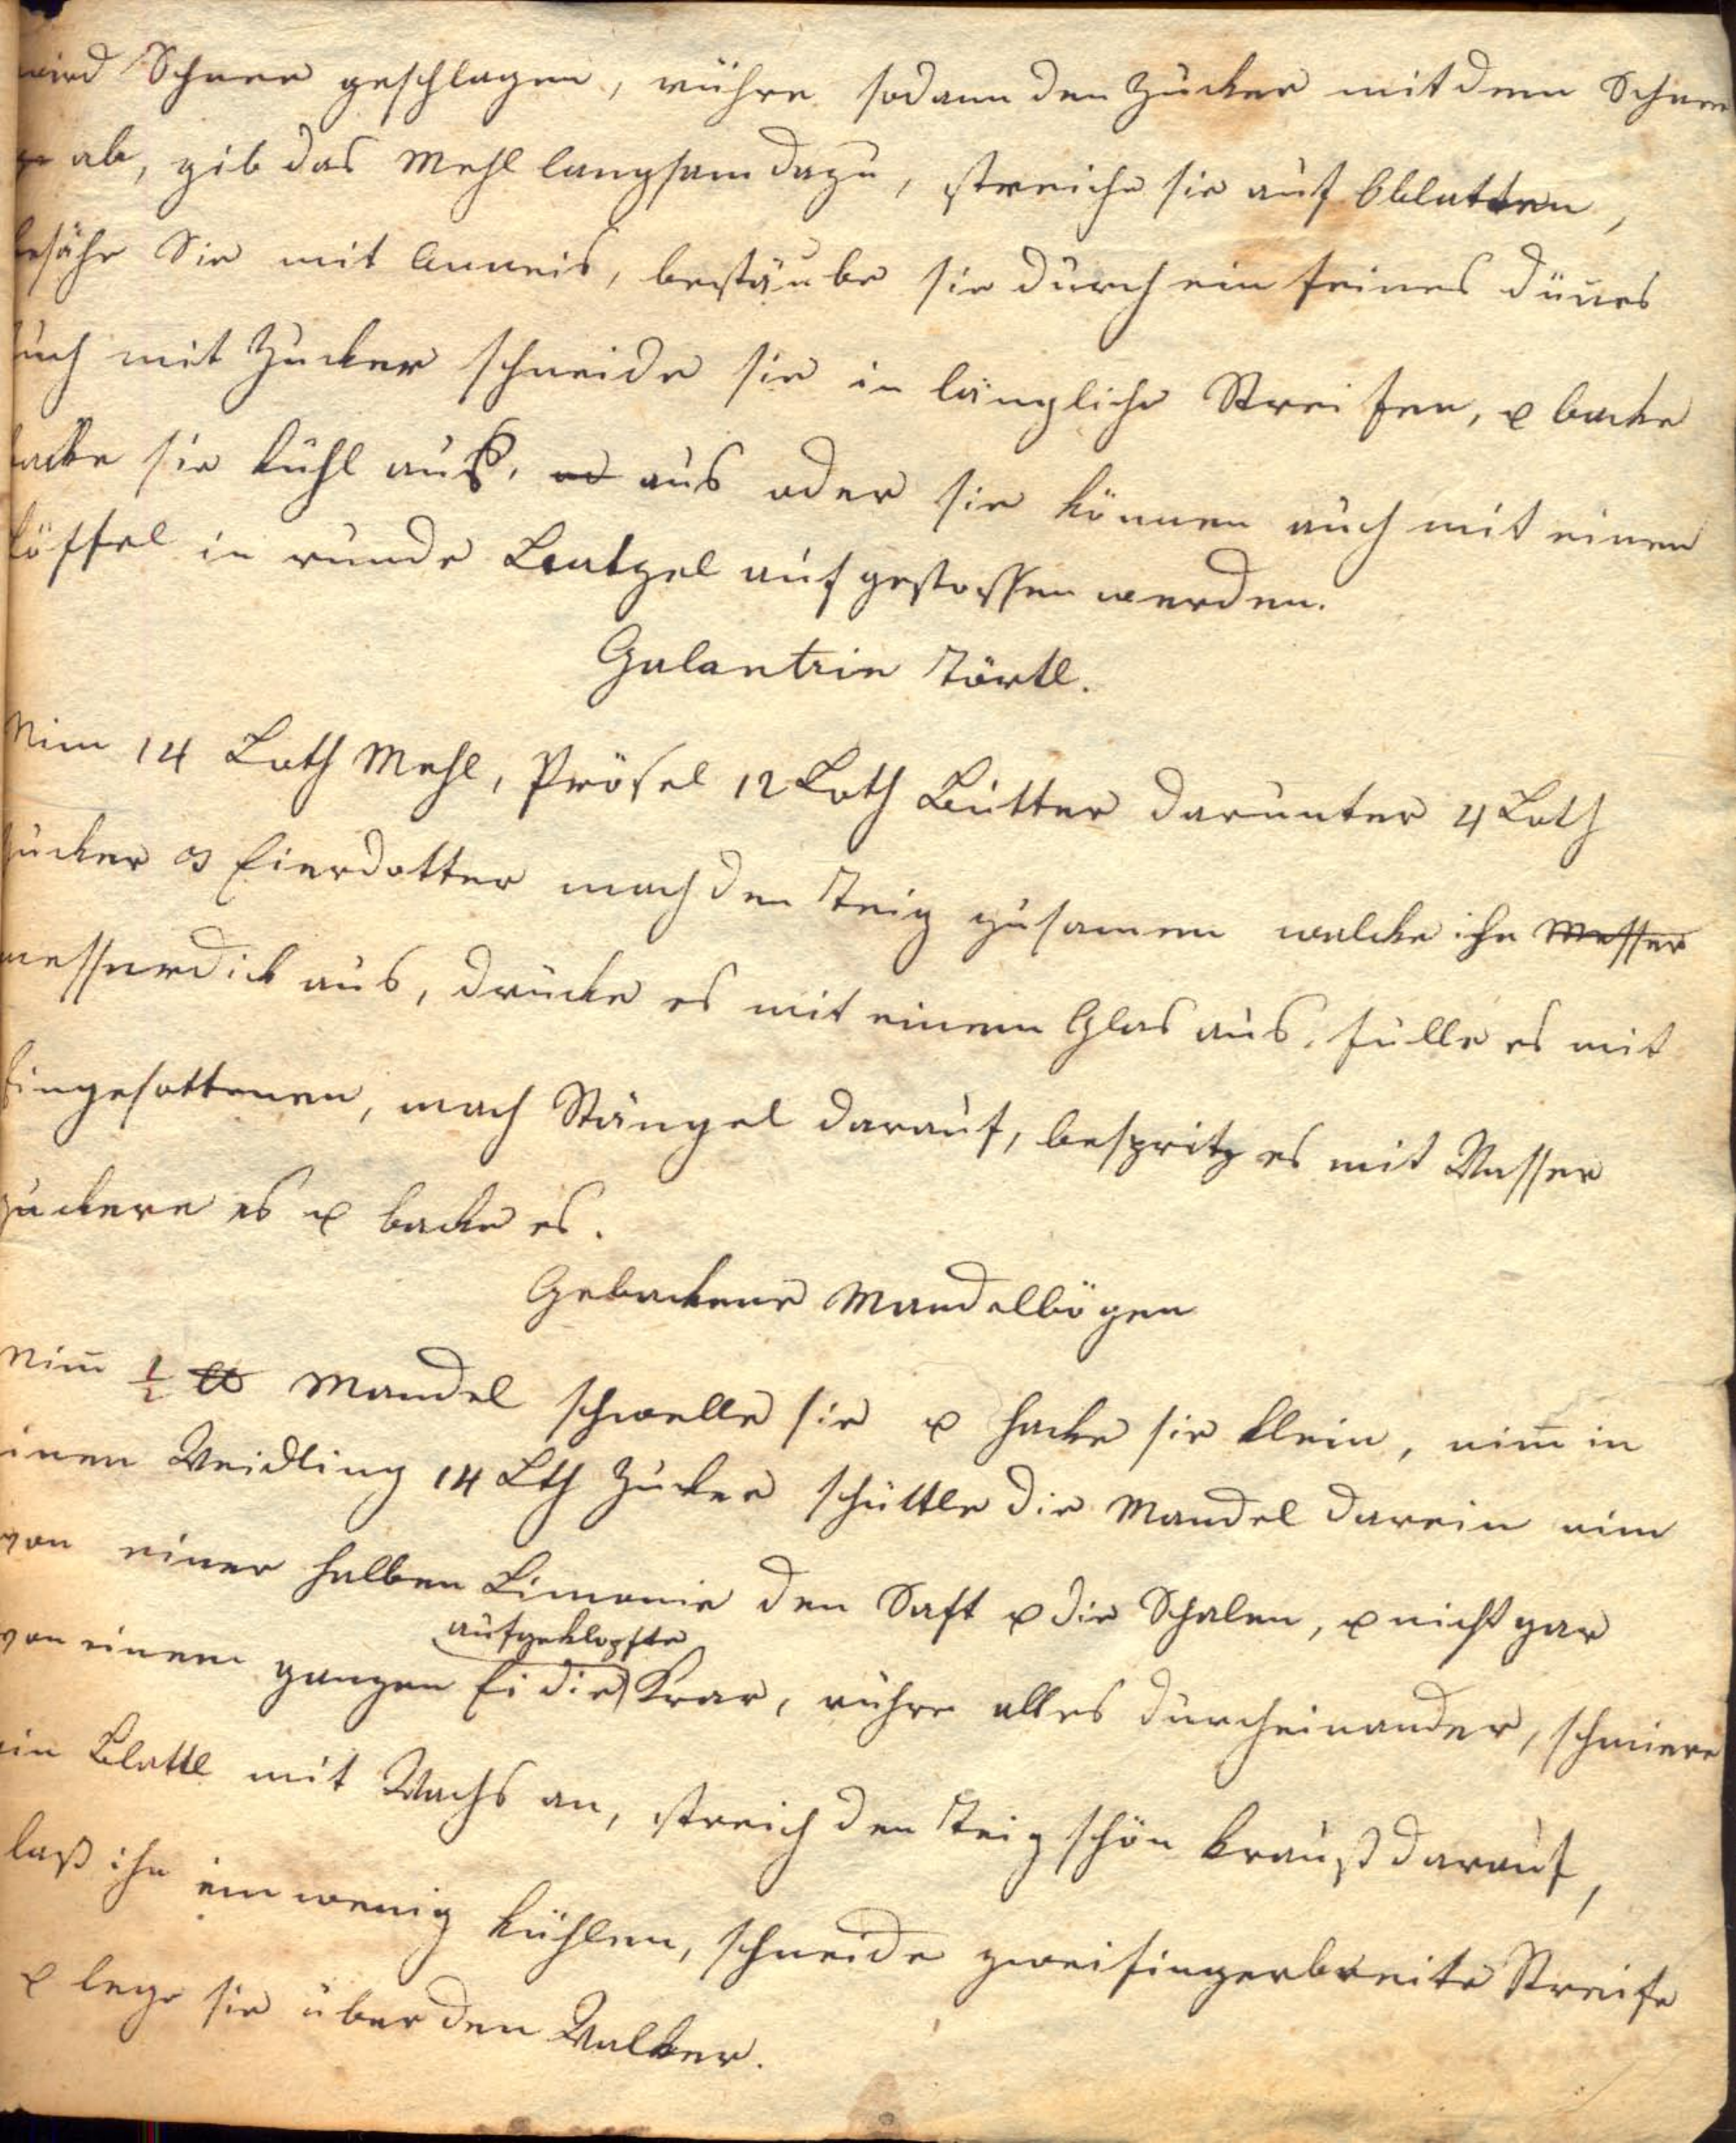 wird Schnee geschlagen, rühre sodann den Zucker mit dem Schnee
ge ab, gib das Mehl langsam dazu, streiche sie auf Oblatten,
besähe Sie mit Anneis, bestäube sie durch ein feines dünes
Tuch mit Zucker schneide sie in längliche Streifen, u backe
backe sie kühl auß, od aus oder sie können auch mit einen
Löffel in runde Laatzel aufgestossen werden.
Galantrie Törtl.
Nim 14 Loth Mehl, Prösel 12 Loth Butter darunter 4 Loth
Zucker 3 Eierdotter mach den Teig zusamen walcke ihn Messer
messerdick aus, drücke es mit einem Glas aus, fülle es mit
Eingesottenen, mach Stängel darauf, bespritz es mit Wasser
zuckere es u backe es.
Gebackene Mandelbögen
Nim̄ 1/2 ℔ Mandel schwelle sie u hacke sie klein, nim̄ in
einen Weidling 14 Lth Zucker schüttle die Mandel darein nim
von einer halben Limonie den Saft u die Schalen, u nicht gar
aufgeklopfte
von einem ganzen Ei die Krar, rühre alles durcheinander, schmiere
ein Blattl mit Wachs an, streich den Teig schön krauß darauf,
laß ihn ein wenig kühlen, schneide zweifingerbreite Streife
u lege sie über den Walker.